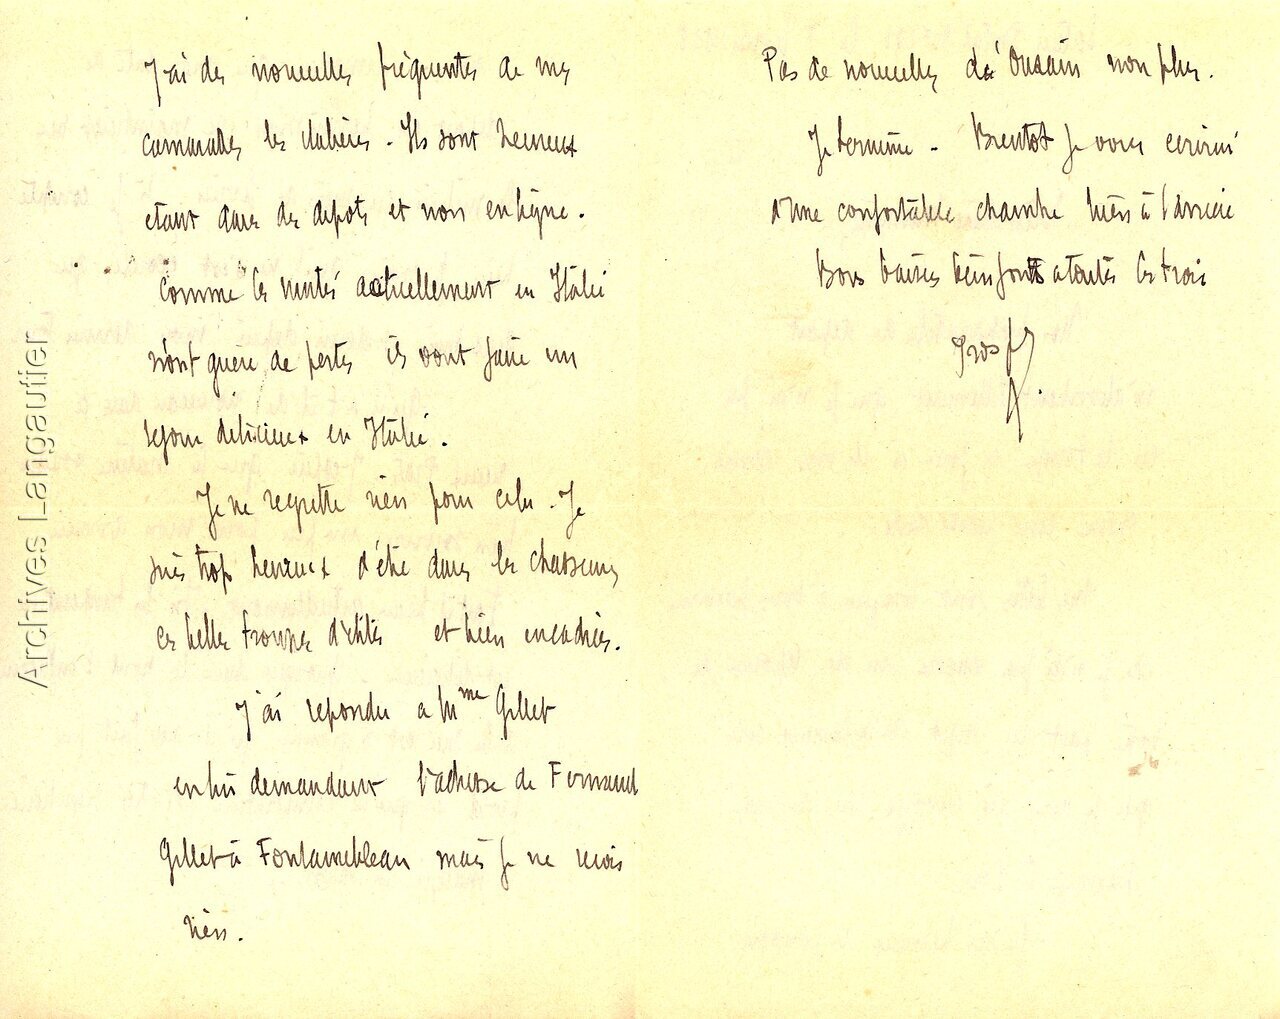 J'ai des nouvelles fréquentes de mes
camarades les Ils sont heureux
étant dans des depots et non en ligne.
Comme les unités actuellement en Italie
n'ont guère de pertes ils vont faire un
sejour delicieux en Italie.
Je ne regrette rien pour cela. Je
suis trop heureux d'être dans les chasseurs
ces belles troupes d'élites et bien encadrées.
J'ai repondu a Mme Gillet
en lui demandant l'adresse de Fernand
Gillet à Fontainebleau mais je ne reçois
rien.
Pas de nouvelles non plus.
Je termine. Bientot je vous ecrirai
d'une confortable chambre bien à l'arriere
Bons baisers bien forts a toutes les trois
Archives Langautier